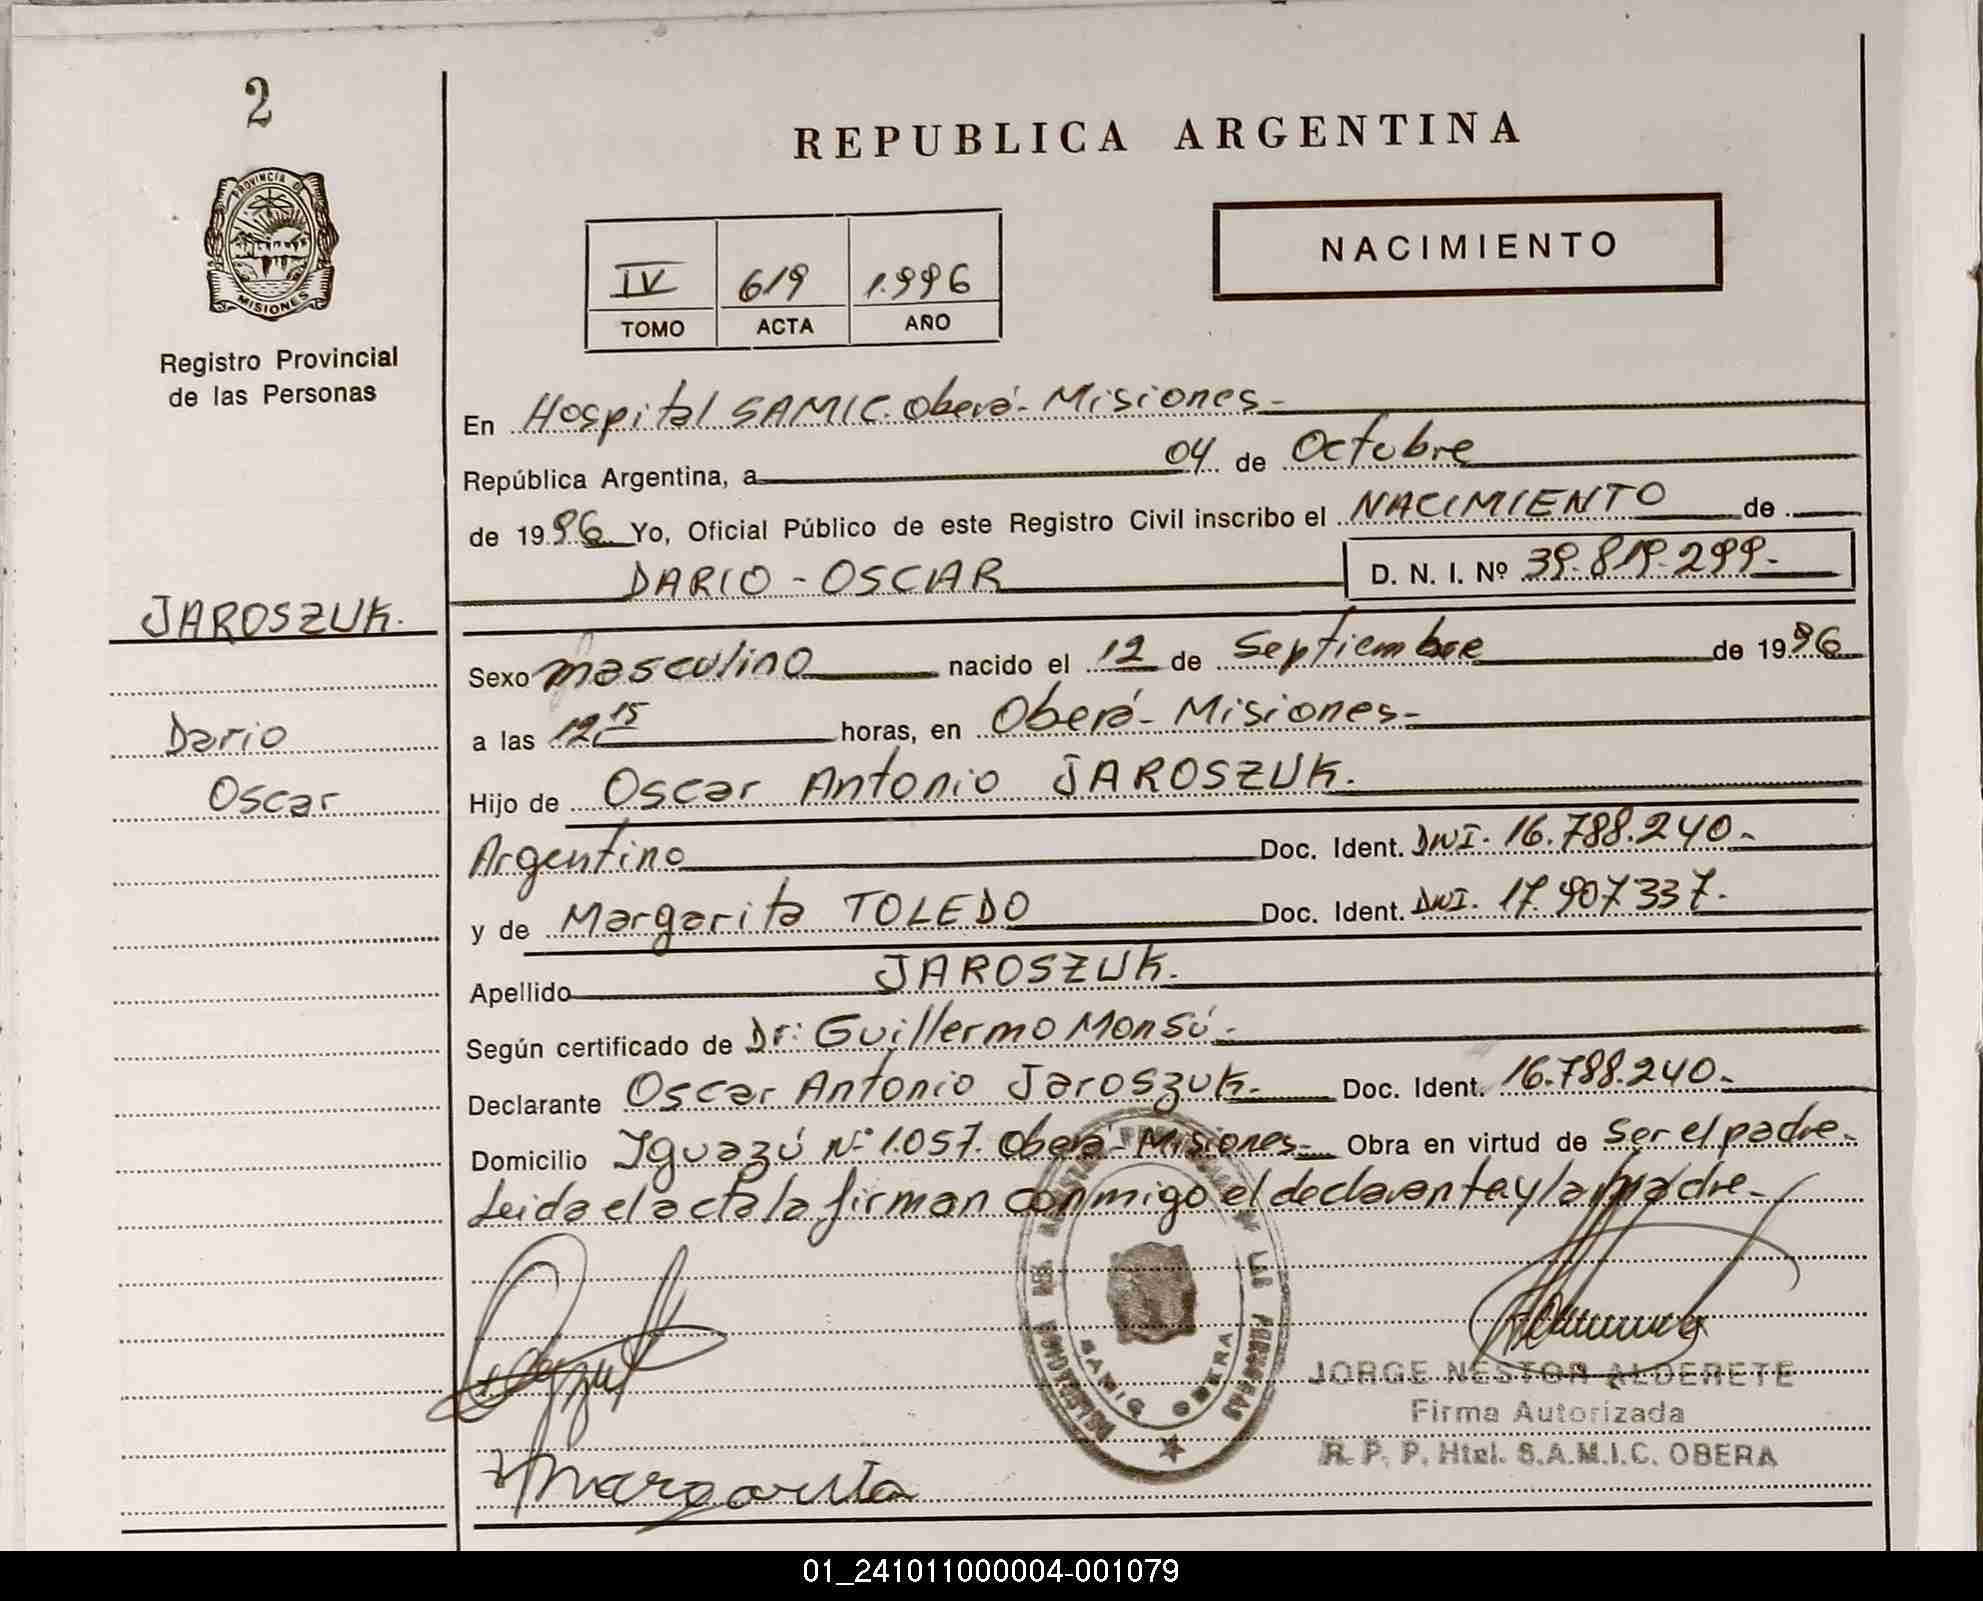 2
PROVINCIA DE
MISIONES
Registro Provincial
de las Personas
JAROSZUK.
Dario
Oscar
REPUBLICA ARGENTINA
NACIMIENTO
IV 619 1.996
TOMO ACTA AÑO
En Hospital SAMIC. Oberá - Misiones -
República Argentina, a 04 de Octubre
de 1996 Yo, Oficial Público de este Registro Civil inscribo el NACIMIENTO de
DARIO - OSCAR D. N. I. Nº 39.819.299.-
Sexo masculino nacido el 12 de Septiembre de 1996
a las 12 15 horas, en Oberá - Misiones -
Hijo de Oscar Antonio JAROSZUK.
Argentino Doc. Ident. DNI. 16.788.240.-
y de Margarita TOLEDO Doc. Ident. DNI. 17.907.337.-
Apellido JAROSZUK.
Según certificado de Dr: Guillermo Monsú.-
Declarante Oscar Antonio Jaroszuk.- Doc. Ident. 16.788.240.-
Domicilio Iguazú Nº 1.057. Oberá - Misiones - Obra en virtud de ser el padre.-
Leida el acta la firman conmigo el declarante y la madre.-
SAMIC OBERA
LAS PERSONAS
JORGE NESTOR ALDERETE
Firma Autorizada
R. P. P. Htal. S.A.M.I.C. OBERA
Margarita
01_241011000004-001079